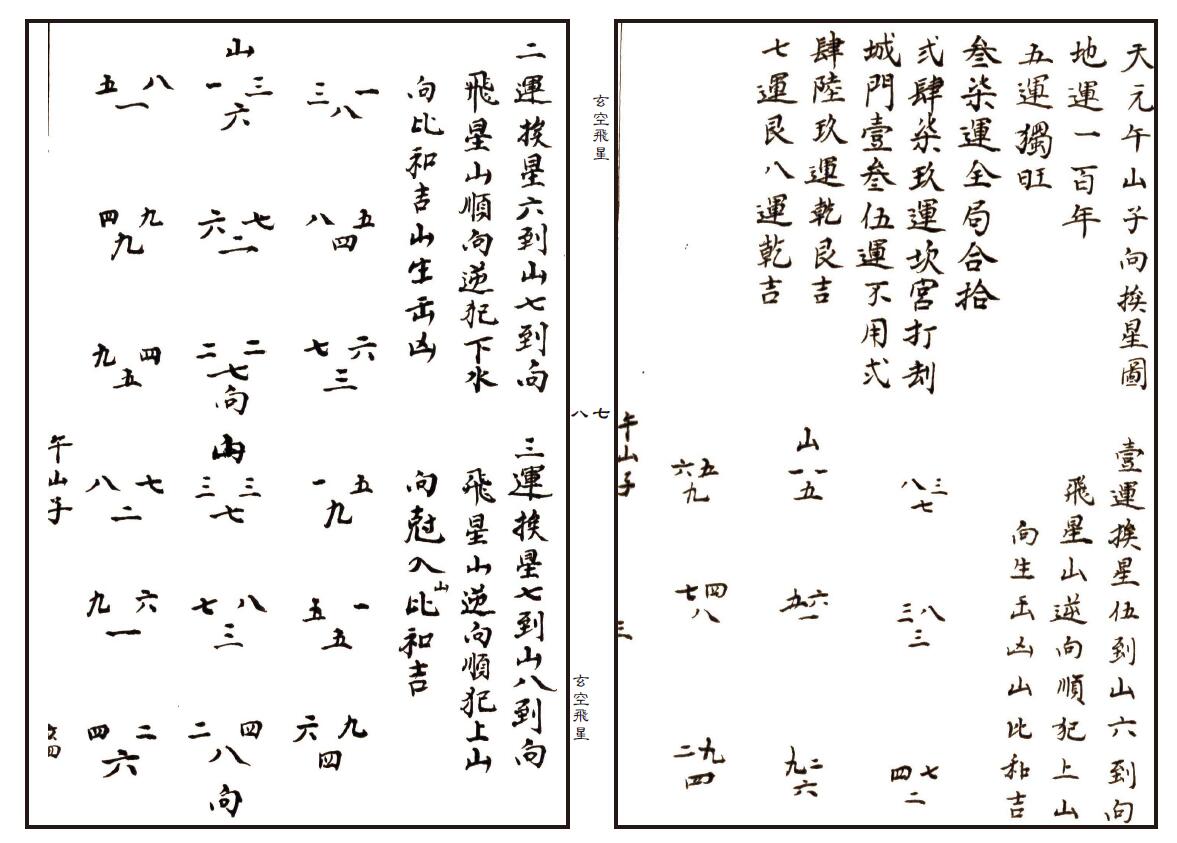 天元午山子向挨星圖
地運一百年
五運獨旺
叁柒運全局合拾
弍肆柒玖運坎宮打刼
城門壹叁伍運不用弍
肆陸玖運乾艮吉
七運艮八運乾吉
壹運挨星伍到山六到向
飛星山逆向順犯上山
向生出凶山比和吉
八三
七
三八
三
四七
二
山
一一
五
五六
一
九二
六
六五
九
七四
八
二九
四
午山子
三
玄空飛星
八七
玄空飛星
二運挨星六到山七到向
飛星山順向逆犯下水
向比和吉山生出凶
三一
八
八五
四
七六
三
山
一三
六
六七
二
二二
七
向
五八
一
四九
九
九四
五
三運挨星七到山八到向
飛星山逆向順犯上山
向尅入山比和吉
一五
九
五一
五
六九
四
山
三三
七
七八
三
二四
八
向
八七
二
九六
一
四二
六
午山子